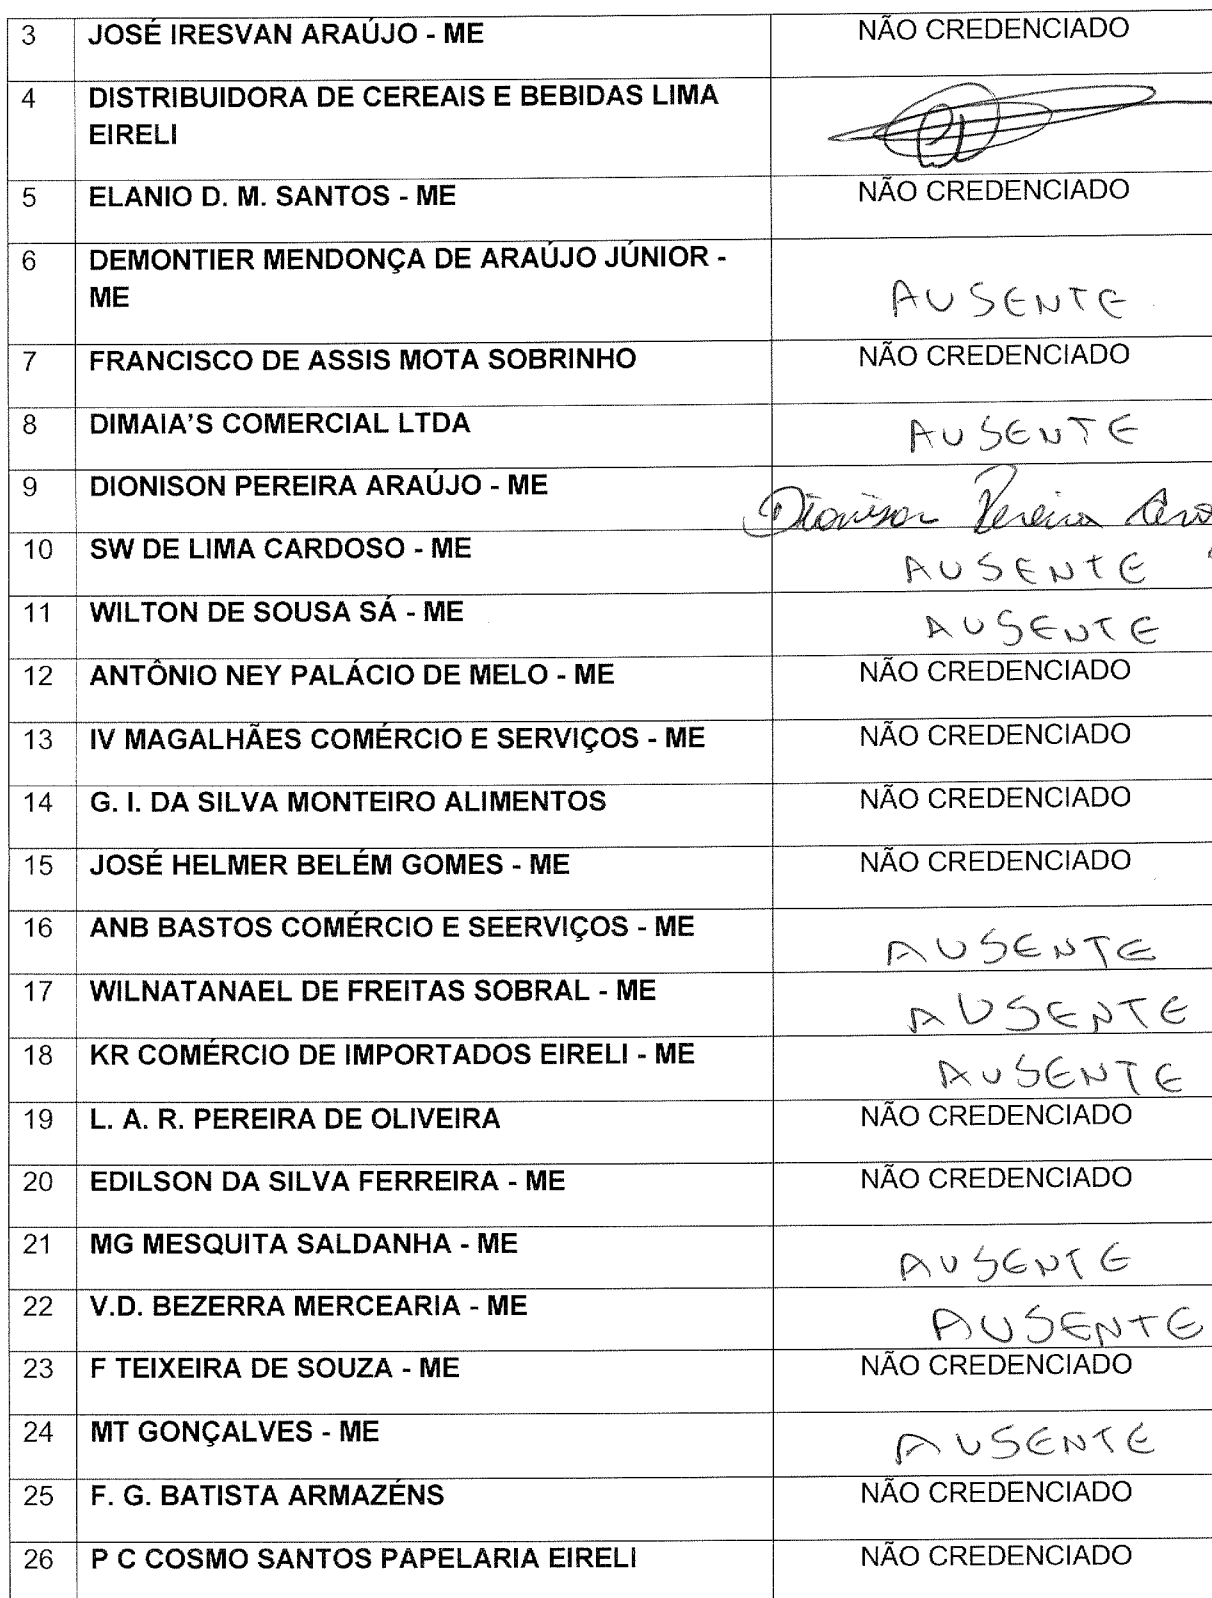 3 JOSÉ IRESVAN ARAÚJO - ME NÃO CREDENCIADO
4 DISTRIBUIDORA DE CEREAIS E BEBIDAS LIMA
EIRELI
5 ELANIO D. M. SANTOS - ME NÃO CREDENCIADO
6 DEMONTIER MENDONÇA DE ARAÚJO JÚNIOR -
ME AUSENTE
7 FRANCISCO DE ASSIS MOTA SOBRINHO NÃO CREDENCIADO
8 DIMAIA'S COMERCIAL LTDA AUSENTE
9 DIONISON PEREIRA ARAÚJO - ME Dionison Pereira
10 SW DE LIMA CARDOSO - ME AUSENTE
11 WILTON DE SOUSA SÁ - ME AUSENTE
12 ANTÔNIO NEY PALÁCIO DE MELO - ME NÃO CREDENCIADO
13 IV MAGALHÃES COMÉRCIO E SERVIÇOS - ME NÃO CREDENCIADO
14 G. I. DA SILVA MONTEIRO ALIMENTOS NÃO CREDENCIADO
15 JOSÉ HELMER BELÉM GOMES - ME NÃO CREDENCIADO
16 ANB BASTOS COMÉRCIO E SEERVIÇOS - ME AUSENTE
17 WILNATANAEL DE FREITAS SOBRAL - ME AUSENTE
18 KR COMÉRCIO DE IMPORTADOS EIRELI - ME AUSENTE
19 L. A. R. PEREIRA DE OLIVEIRA NÃO CREDENCIADO
20 EDILSON DA SILVA FERREIRA - ME NÃO CREDENCIADO
21 MG MESQUITA SALDANHA - ME AUSENTE
22 V.D. BEZERRA MERCEARIA - ME AUSENTE
23 F TEIXEIRA DE SOUZA - ME NÃO CREDENCIADO
24 MT GONÇALVES - ME AUSENTE
25 F. G. BATISTA ARMAZÉNS NÃO CREDENCIADO
26 P C COSMO SANTOS PAPELARIA EIRELI NÃO CREDENCIADO